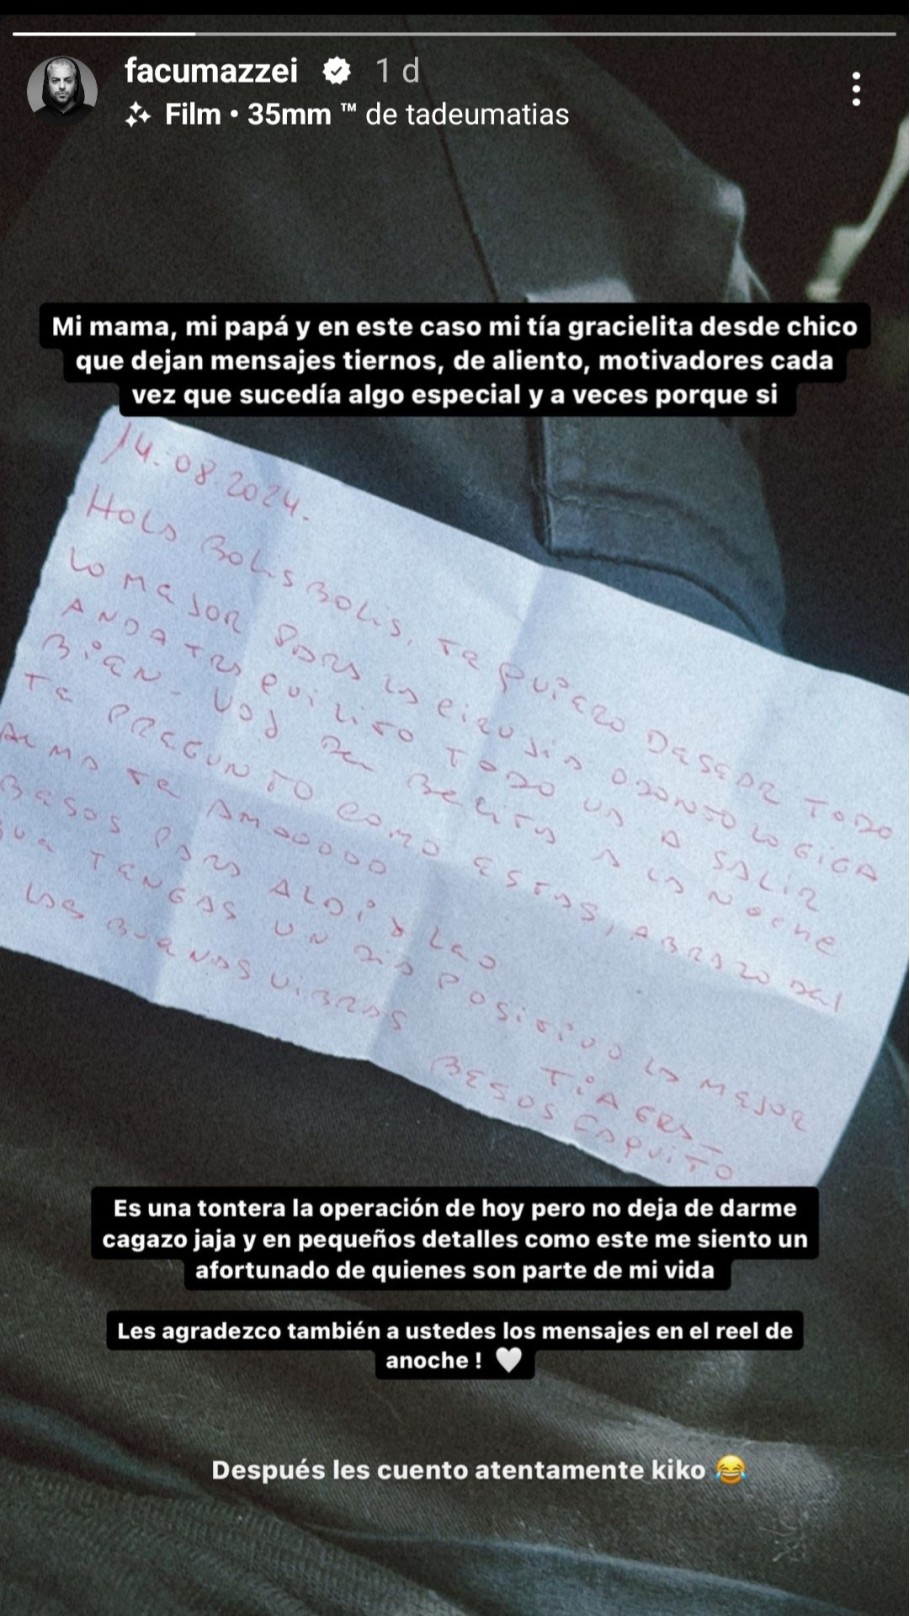 facumazzei 1 d
Film • 35mm ™ de tadeumatias
Mi mama, mi papá y en este caso mi tía gracielita desde chico
que dejan mensajes tiernos, de aliento, motivadores cada
vez que sucedía algo especial y a veces porque si
14.08.2024.
HOLA BOLIS BOLIS, TE QUIERO DESEAR TODO
LO MEJOR PARA LA CIRUJIA ODONTOLOGICA
ANDA TRANQUILITO TODO VA A SALIR
BIEN - VOS A LA NOCHE
TE PREGUNTO COMO ESTAS, ABRAZO DEL
ALMA TE AMOOOOO
BESOS PARA ALDI Y LEO
QUE TENGAS UN DIA POSITIVO LA MEJOR
LAS BUENAS VIBRAS
TIA GRA_
BESOS CAQUITO
Es una tontera la operación de hoy pero no deja de darme
cagazo jaja y en pequeños detalles como este me siento un
afortunado de quienes son parte de mi vida
Les agradezco también a ustedes los mensajes en el reel de
anoche ! 🤍
Después les cuento atentamente kiko 😂